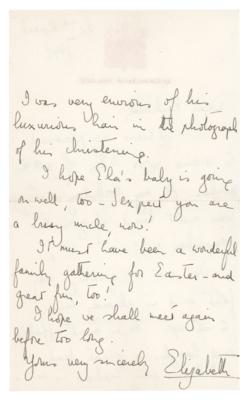 I was very envious of his
luxurious hair in the photograph
of his christening.
I hope Ela's baby is going
on well, too - I expect you are
a busy uncle, now!
It must have been a wonderful
family gathering for Easter - and
great fun, too!
I hope we shall meet again
before too long.
Yours very sincerely
Elizabeth